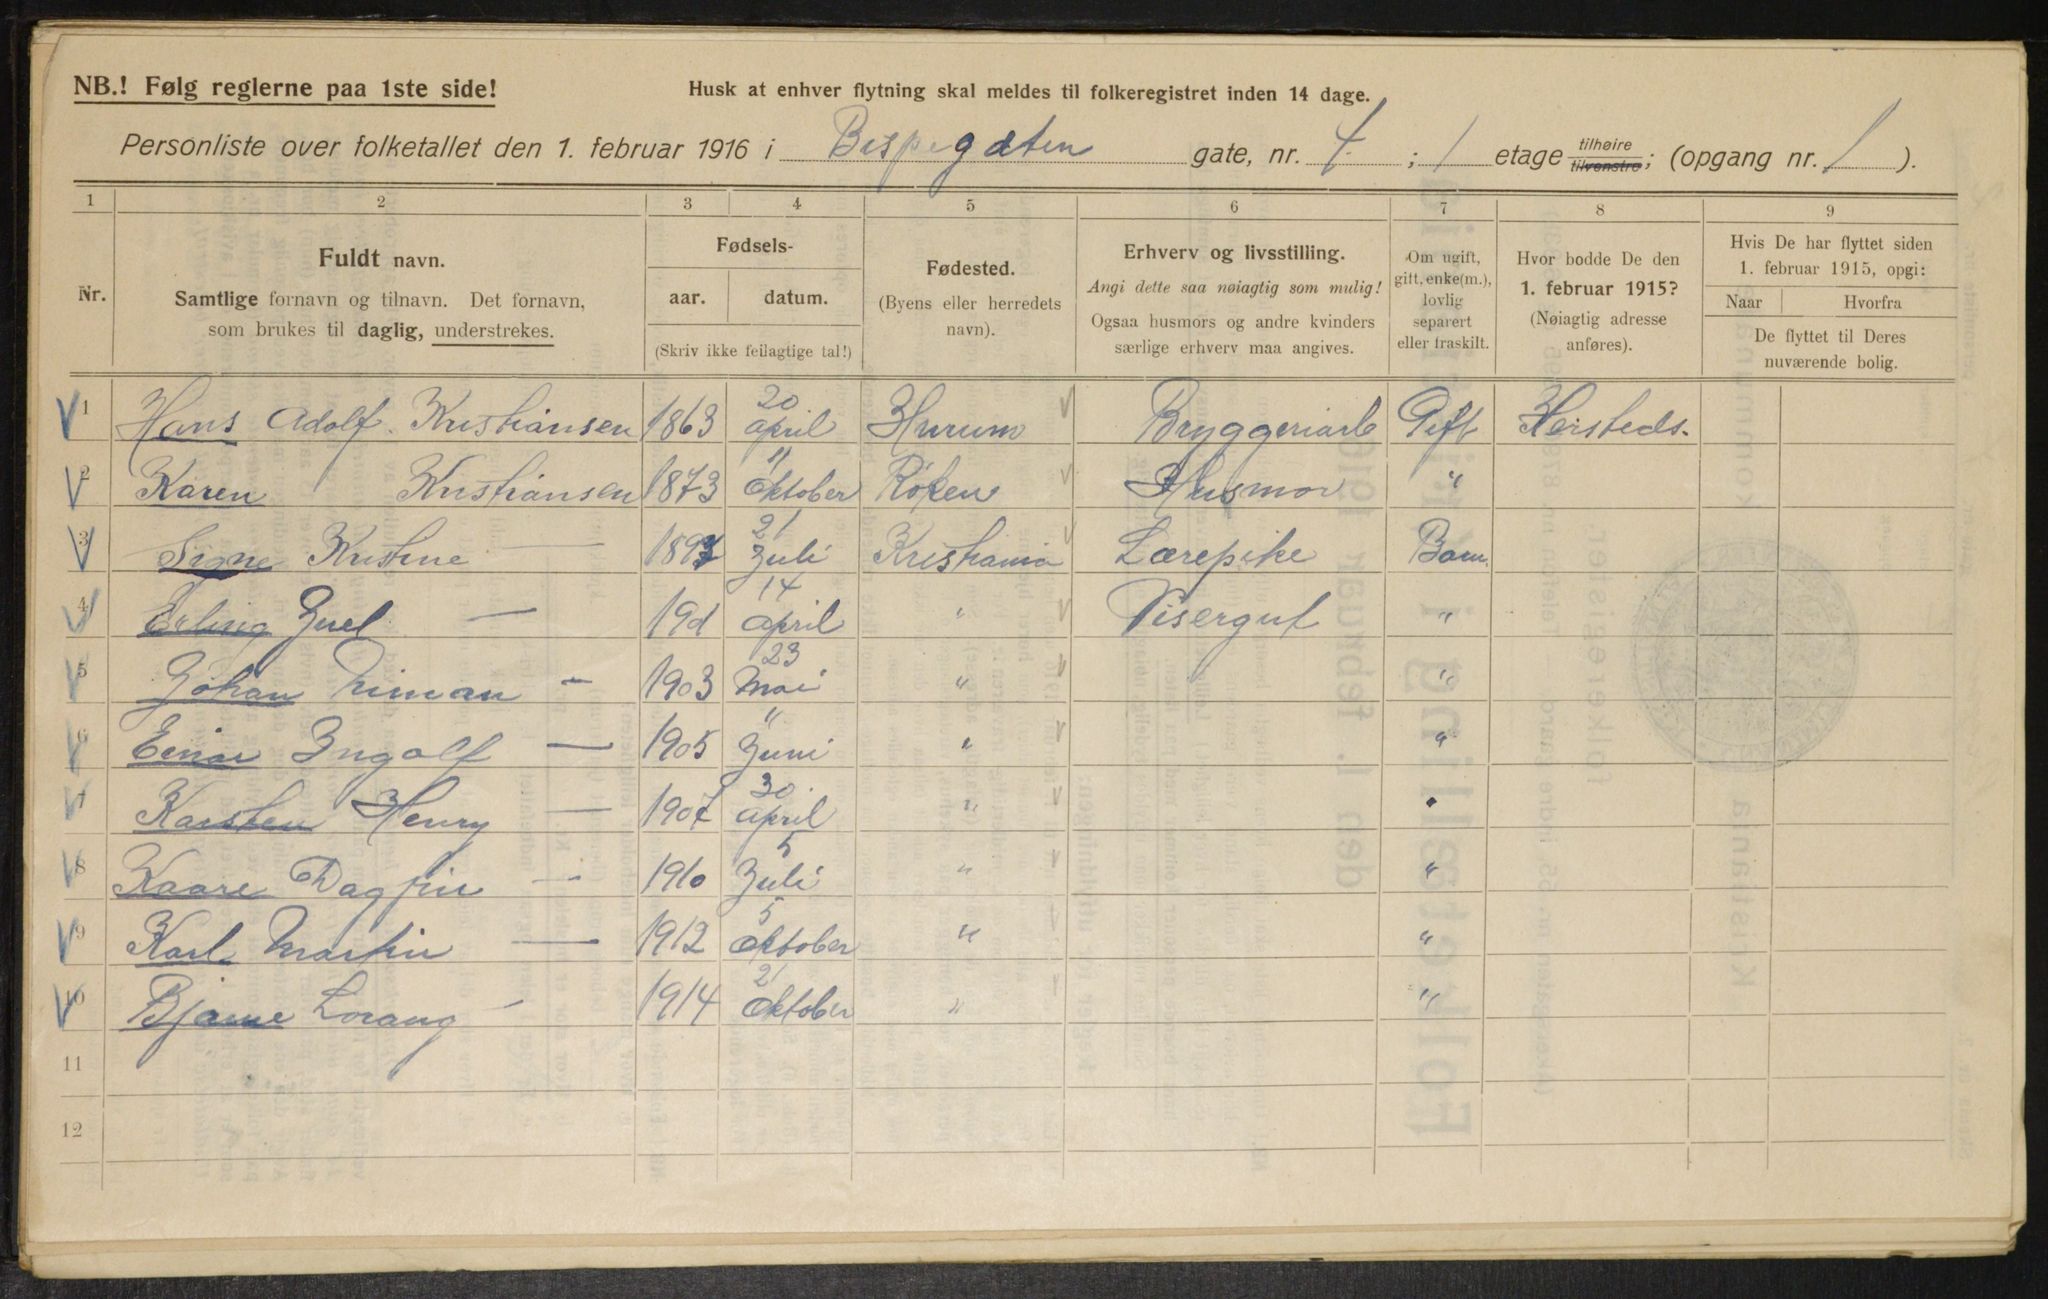 NB.! Følg reglerne paa 1ste side!
Husk at enhver flytning skal meldes til folkeregistret inden 14 dage.
Personliste over folketallet den 1. februar 1916 i Bispegaten gate, nr. 4 ; 1 etage tilhøire tilvenstre; (opgang nr. 1 ).
1 2 3 4 5 6 7 8 9
Nr.
Fuldt navn.
Samtlige fornavn og tilnavn. Det fornavn,
som brukes til daglig, understrekes.
Fødsels-
aar. datum.
(Skriv ikke feilagtige tal!)
Fødested.
(Byens eller herredets
navn).
Erhverv og livsstilling.
Angi dette saa nøiagtig som mulig!
Ogsaa husmors og andre kvinders
særlige erhverv maa angives.
Om ugift,
gift, enke(m.),
lovlig
separert
eller fraskilt.
Hvor bodde De den
1. februar 1915?
(Nøiagtig adresse
anføres).
Hvis De har flyttet siden
1. februar 1915, opgi:
Naar Hvorfra
De flyttet til Deres
nuværende bolig.
1 Hans Adolf Kristiansen 1863 20 april Hurum Bryggeriarb Gift
2 Karen Kristiansen 1873 11 Oktober Røken Husmor "
3 Signe Kristine — 1897 21 Juli Kristiania Lærepike Barn
4 Erling Juel — 14 april " Visergut "
5 Johan — 1903 23 Mai " "
6 Einar Ingolf — 1905 " Juni " "
7 Karsten Henry — 1907 30 april " "
8 Kaare Dagfin — 1910 5 Juli " "
9 Karl Martin — 1912 5 Oktober " "
10 Bjarne Lorang — 1914 21 Oktober " "
11
12